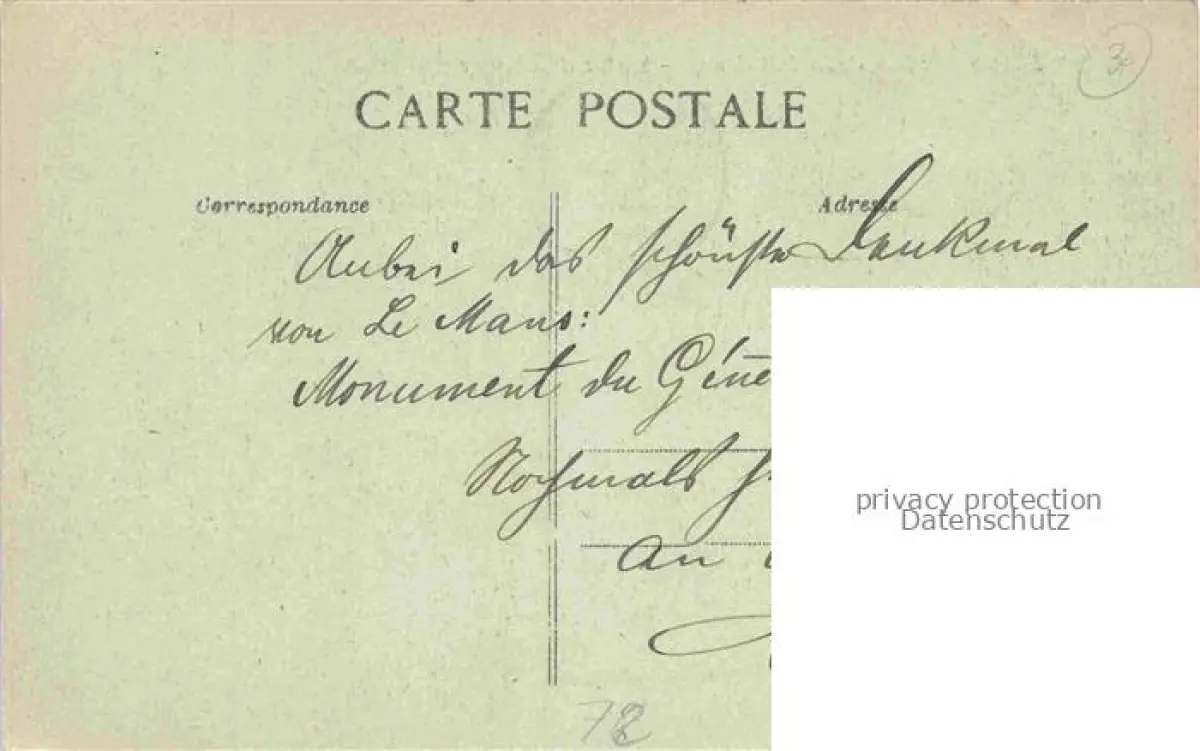 3f
CARTE POSTALE
Correspondance
Adresse
Anbei das schönste Denkmal
von Le Mans:
Monument du Géné
Nochmals
An
privacy protection
Datenschutz
72